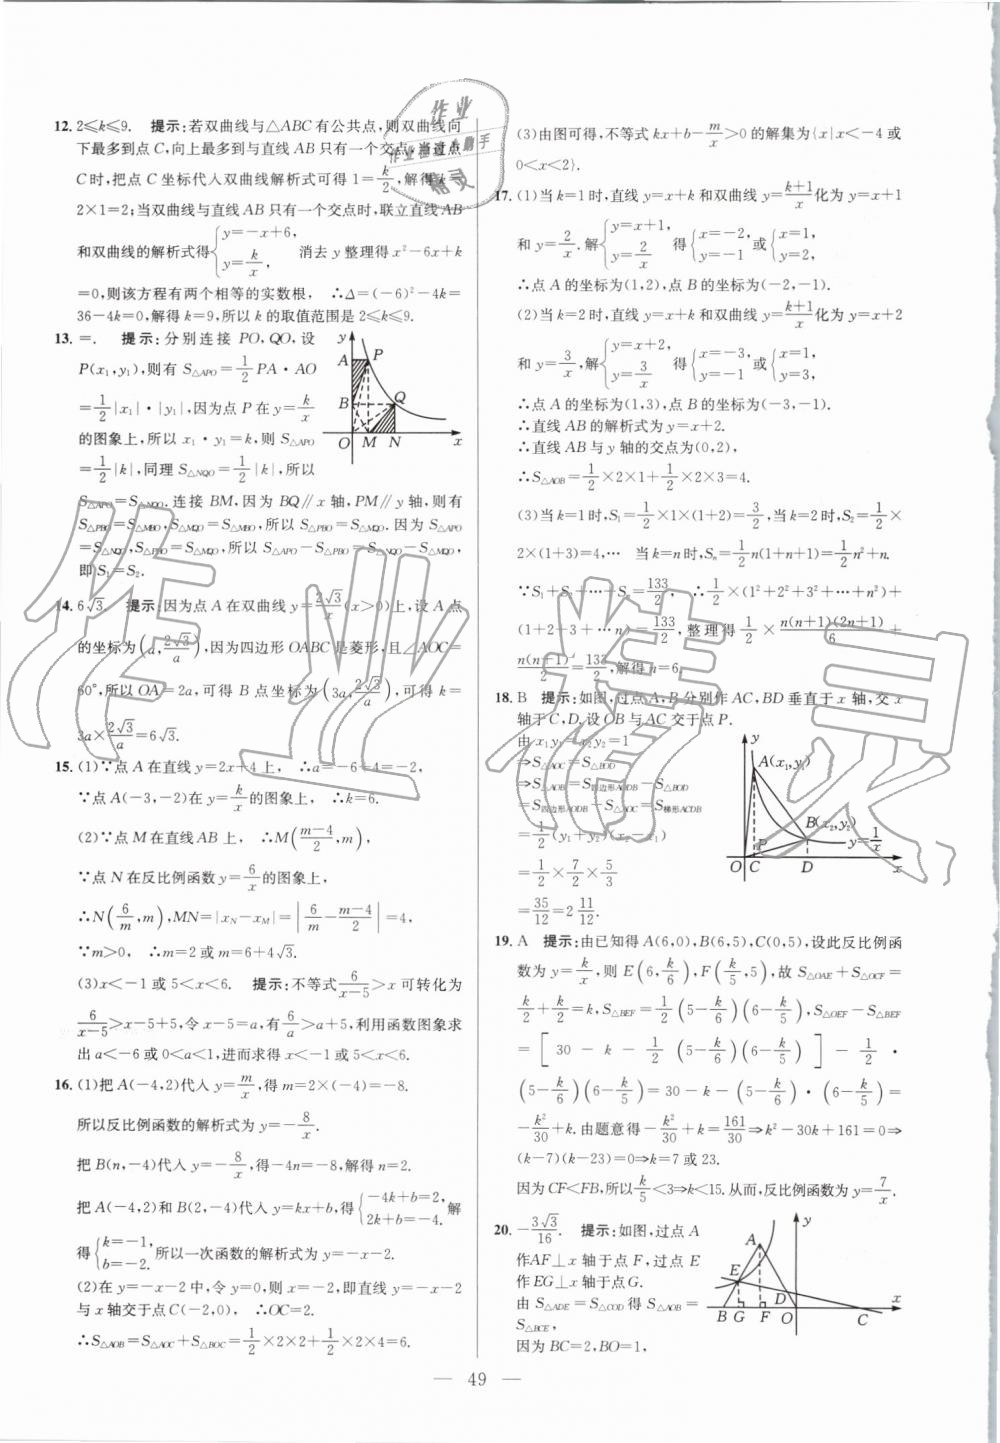 12. 2≤k≤9. 提示:若双曲线与△ABC有公共点,则双曲线向
下最多到点C,向上最多到与直线AB只有一个交点,当过点
C时,把点C坐标代入双曲线解析式可得1=k/2,解得k=
2×1=2;当双曲线与直线AB只有一个交点时,联立直线AB
和双曲线的解析式得{y=-x+6, y=k/x, 消去y整理得x²-6x+k
=0,则该方程有两个相等的实数根, ∴Δ=(-6)²-4k=
36-4k=0,解得k=9,所以k的取值范围是2≤k≤9.
13. =. 提示:分别连接PO,QO,设
P(x₁,y₁),则有S△APO=1/2 PA·AO
=1/2|x₁|·|y₁|,因为点P在y=k/x
的图象上,所以x₁·y₁=k,则S△APO
=1/2|k|,同理S△NQO=1/2|k|,所以
S△APO=S△NQO.连接BM,因为BQ∥x轴,PM∥y轴,则有
S△PBO=S△MBO,S△MQO=S△MBO,所以S△PBO=S△MQO.因为S△APO
=S△NQO,S△PBO=S△MQO,所以S△APO-S△PBO=S△NQO-S△MQO,
即S₁=S₂.
y
A P
B Q
O M N x
14. 6√3. 提示:因为点A在双曲线y=2√3/x(x>0)上,设A点
的坐标为(a,2√3/a),因为四边形OABC是菱形,且∠AOC=
60°,所以OA=2a,可得B点坐标为(3a,2√3/a),可得k=
3a×2√3/a=6√3.
15. (1)∵点A在直线y=2x+4上, ∴a=-6+4=-2,
∵点A(-3,-2)在y=k/x的图象上, ∴k=6.
(2)∵点M在直线AB上, ∴M((m-4)/2,m),
∵点N在反比例函数y=6/x的图象上,
∴N(6/m,m),MN=|xN-xM|=|6/m-(m-4)/2|=4,
∵m>0, ∴m=2或m=6+4√3.
(3)x<-1或5<x<6. 提示:不等式6/(x-5)>x可转化为
6/(x-5)>x-5+5,令x-5=a,有6/a>a+5,利用函数图象求
出a<-6或0<a<1,进而求得x<-1或5<x<6.
16. (1)把A(-4,2)代入y=m/x,得m=2×(-4)=-8.
所以反比例函数的解析式为y=-8/x.
把B(n,-4)代入y=-8/x,得-4n=-8,解得n=2.
把A(-4,2)和B(2,-4)代入y=kx+b,得{-4k+b=2, 2k+b=-4.解
得{k=-1, b=-2.所以一次函数的解析式为y=-x-2.
(2)在y=-x-2中,令y=0,则x=-2,即直线y=-x-2
与x轴交于点C(-2,0), ∴OC=2.
∴S△AOB=S△AOC+S△BOC=1/2×2×2+1/2×2×4=6.
(3)由图可得,不等式kx+b-m/x>0的解集为{x|x<-4或
0<x<2}.
17. (1)当k=1时,直线y=x+k和双曲线y=(k+1)/x化为y=x+1
和y=2/x.解{y=x+1, y=2/x 得{x=-2, y=-1或{x=1, y=2,
∴点A的坐标为(1,2),点B的坐标为(-2,-1).
(2)当k=2时,直线y=x+k和双曲线y=(k+1)/x化为y=x+2
和y=3/x,解{y=x+2, y=3/x 得{x=-3, y=-1或{x=1, y=3,
∴点A的坐标为(1,3),点B的坐标为(-3,-1).
∴直线AB的解析式为y=x+2.
∴直线AB与y轴的交点为(0,2),
∴S△AOB=1/2×2×1+1/2×2×3=4.
(3)当k=1时,S₁=1/2×1×(1+2)=3/2,当k=2时,S₂=1/2×
2×(1+3)=4,… 当k=n时,Sₙ=1/2n(1+n+1)=1/2n²+n.
∵S₁+S₂+…+Sₙ=133/2, ∴1/2×(1²+2²+3²+…+n²)+
(1+2+3+…n)=133/2,整理得1/2×n(n+1)(2n+1)/6+
n(n+1)/2=133/2,解得n=6.
18. B 提示:如图,过点A,B分别作AC,BD垂直于x轴,交x
轴于C,D,设OB与AC交于点P.
由x₁y₁=x₂y₂=1
⇒S△AOC=S△BOD
⇒S△AOB=S四边形AODB-S△BOD
=S四边形AODB-S△AOC=S梯形ACDB
=1/2(y₁+y₂)(x₂-x₁)
=1/2×7/2×5/3
=35/12=2 11/12.
y
A(x₁,y₁)
B(x₂,y₂) y=1/x
P
O C D x
19. A 提示:由已知得A(6,0),B(6,5),C(0,5),设此反比例函
数为y=k/x,则E(6,k/6),F(k/5,5),故S△OAE+S△OCF=
k/2+k/2=k,S△BEF=1/2(5-k/6)(6-k/5),S△OEF-S△BEF
=[30-k-1/2(5-k/6)(6-k/5)]-1/2·
(5-k/6)(6-k/5)=30-k-(5-k/6)·(6-k/5)=
-k²/30+k.由题意得-k²/30+k=161/30⇒k²-30k+161=0⇒
(k-7)(k-23)=0⇒k=7或23.
因为CF<FB,所以k/5<3⇒k<15.从而,反比例函数为y=7/x.
20. -3√3/16. 提示:如图,过点A
作AF⊥x轴于点F,过点E
作EG⊥x轴于点G.
由S△ADE=S△COD得S△AOB=
S△BCE,
因为BC=2,BO=1,
y
A
E
D x
B G F O C
— 49 —
作业
作业检查助手
精灵
作业精灵